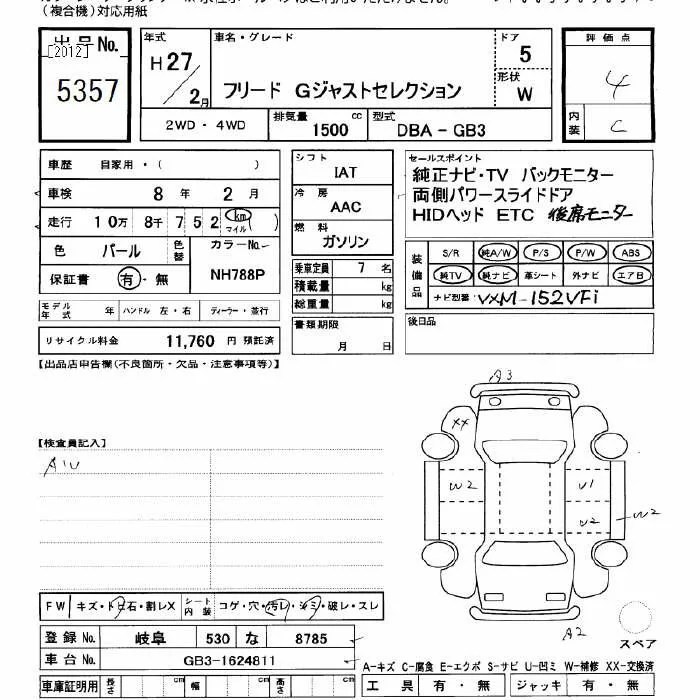 （複合機）対応用紙
出品No.
[2012]
5357
年式
H27/2月
車名・グレード
フリード Gジャストセレクション
ドア
5
形状
W
評価点
4
内装
C
2WD・4WD
排気量
1500 cc
型式
DBA－GB3
車歴 自家用・（ ）
車検 8年 2月
走行 10万 8千 752 (km マイル)
色 パール 色替 カラーNo. NH788P
保証書 有・無
モデル年式 年 ハンドル 左・右 ディーラー・並行
リサイクル料金 11,760 円 預託済
シフト
IAT
冷房
AAC
燃料
ガソリン
乗車定員 7 名
積載量 kg
総重量 kg
書類期限
月 日
セールスポイント
純正ナビ・TV バックモニター
両側パワースライドドア
HIDヘッド ETC 後席モニター
装備品
S/R 純A/W P/S P/W ABS
純TV 純ナビ 革シート 外ナビ エアB
ナビ型番 VXM-152VFi
後日品
【出品店申告欄(不良箇所・欠品・注意事項等)】
【検査員記入】
AIU
A3
XX
W2
U1
U2
W2
A2
スペア
FW キズ・トビ石・割レX シート内装 コゲ・穴・汚レ・シミ・破レ・スレ
登録No. 岐阜 530 な 8785
車台No. GB3-1624811
車庫証明用 長さ cm 幅 cm 高さ cm
A-キズ C-腐食 E-エクボ S-サビ U-凹ミ W-補修 XX-交換済
工具 有・無 ジャッキ 有・無